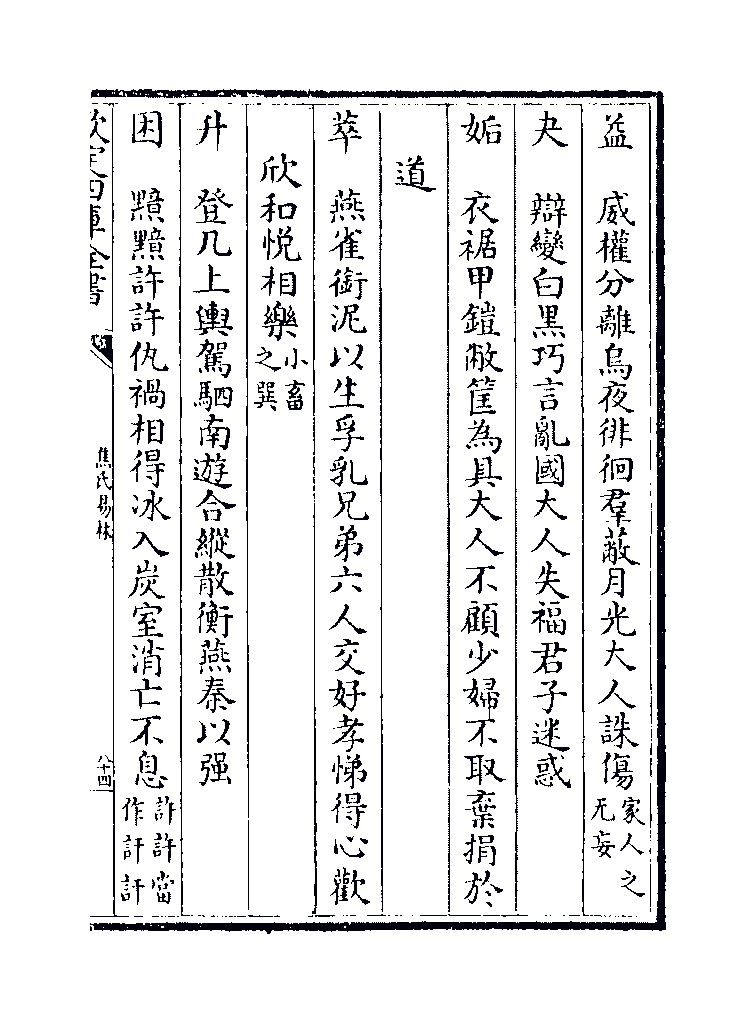 益　威權分離烏夜徘徊羣蔽月光大人誅傷家人之无妄
夬　辯變白黒巧言亂國大人失福君子迷惑
姤　衣裾甲鎧敝筐為具大人不顧少婦不取棄捐於
道
萃　燕雀銜泥以生孚乳兄弟六人交好孝悌得心歡
欣和悦相樂小畜之巽
升　登几上輿駕駟南遊合縱散衡燕秦以强
困　黯黯許許仇禍相得冰入炭室消亡不息許許當作訐訐
欽定四庫全書
焦氏易林
八十四